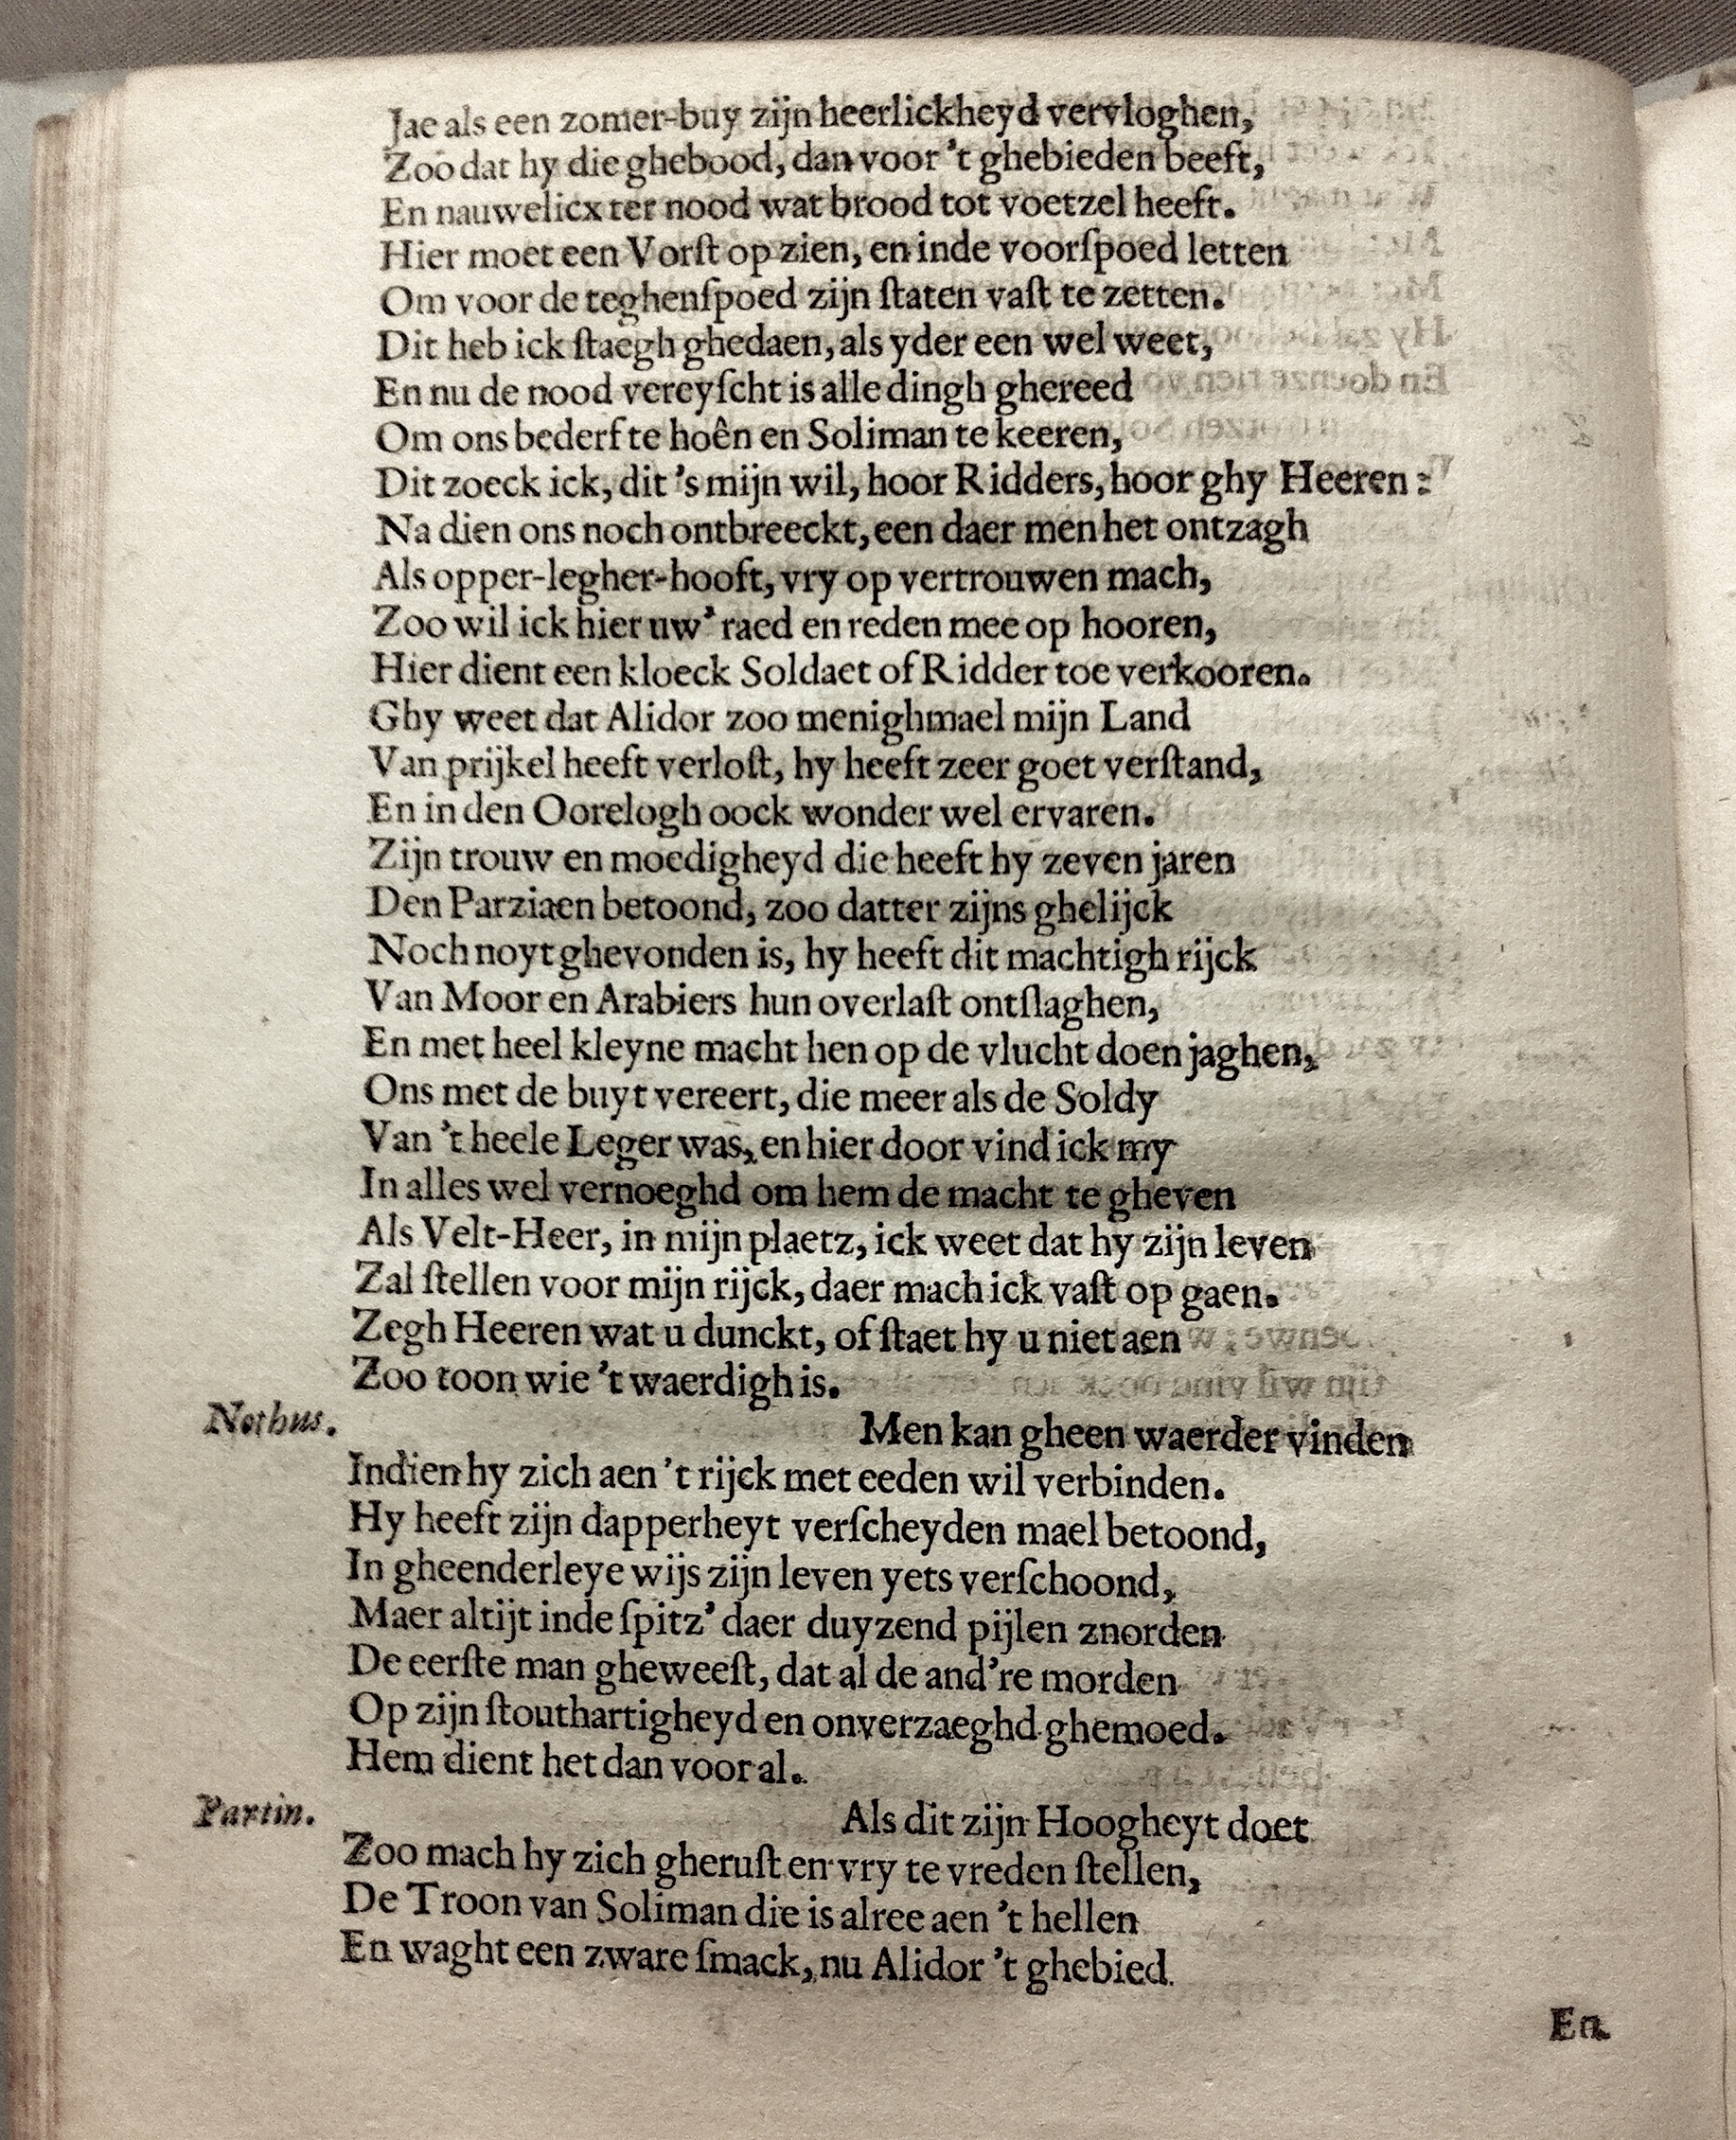 Jae als een zomer-buy zijn heerlickheyd vervloghen,
Zoo dat hy die ghebood, dan voor 't ghebieden beeft,
En nauwelicx ter nood wat brood tot voetzel heeft.
Hier moet een Vorſt op zien, en inde voorſpoed letten
Om voor de teghenſpoed zijn ſtaten vaſt te zetten.
Dit heb ick ſtaegh ghedaen, als yder een wel weet,
En nu de nood vereyſcht is alle dingh ghereed
Om ons bederf te hoên en Soliman te keeren,
Dit zoeck ick, dit 's mijn wil, hoor Ridders, hoor ghy Heeren:
Na dien ons noch ontbreeckt, een daer men het ontzagh
Als opper-legher-hooft, vry op vertrouwen mach,
Zoo wil ick hier uw' raed en reden mee op hooren,
Hier dient een kloeck Soldaet of Ridder toe verkooren.
Ghy weet dat Alidor zoo menighmael mijn Land
Van prijkel heeft verloſt, hy heeft zeer goet verſtand,
En in den Oorelogh oock wonder wel ervaren.
Zijn trouw en moedigheyd die heeft hy zeven jaren
Den Parziaen betoond, zoo datter zijns ghelijck
Noch noyt ghevonden is, hy heeft dit machtigh rijck
Van Moor en Arabiers hun overlaſt ontſlaghen,
En met heel kleyne macht hen op de vlucht doen jaghen,
Ons met de buyt vereert, die meer als de Soldy
Van 't heele Leger was, en hier door vind ick my
In alles wel vernoeghd om hem de macht te gheven
Als Velt-Heer, in mijn plaetz, ick weet dat hy zijn leven
Zal ſtellen voor mijn rijck, daer mach ick vaſt op gaen.
Zegh Heeren wat u dunckt, of ſtaet hy u niet aen
Zoo toon wie 't waerdigh is.
Nothus. Men kan gheen waerder vinden
Indien hy zich aen 't rijck met eeden wil verbinden.
Hy heeft zijn dapperheyt verſcheyden mael betoond,
In gheenderleye wijs zijn leven yets verſchoond,
Maer altijt inde ſpitz' daer duyzend pijlen znorden
De eerſte man gheweeſt, dat al de and're morden
Op zijn ſtouthartigheyd en onverzaeghd ghemoed.
Hem dient het dan voor al.
Partin. Als dit zijn Hoogheyt doet
Zoo mach hy zich gheruſt en vry te vreden ſtellen,
De Troon van Soliman die is alree aen 't hellen
En waght een zware ſmack, nu Alidor 't ghebied.
En